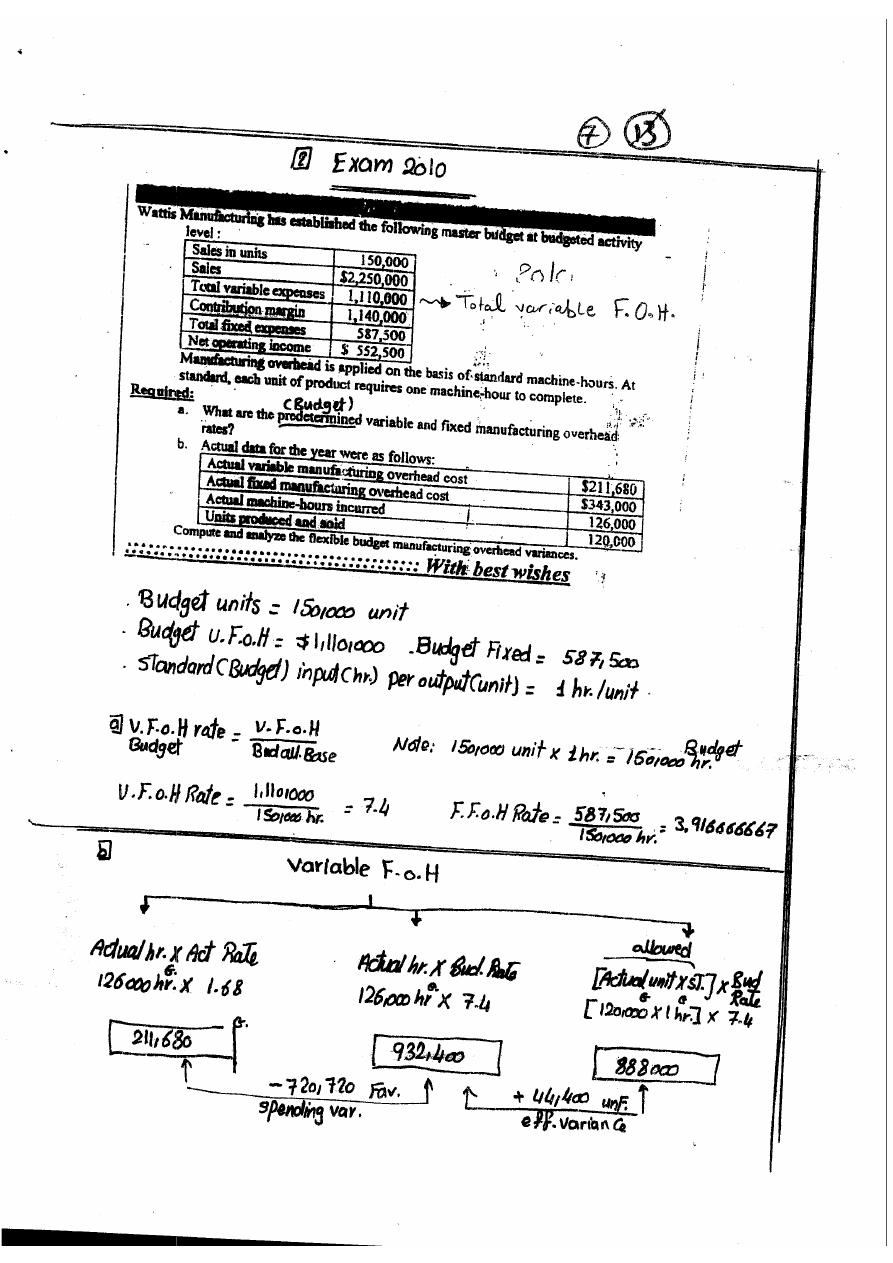 7 13
2 Exam 2010
Wattis Manufacturing has established the following master budget at budgeted activity
level :
Sales in units 150,000
Sales $2,250,000
Total variable expenses 1,110,000 Total variable F.O.H.
Contribution margin 1,140,000
Total fixed expenses 587,500
Net operating income $ 552,500
Manufacturing overhead is applied on the basis of standard machine-hours. At
standard, each unit of product requires one machine-hour to complete.
Required:
(Budget)
a. What are the predetermined variable and fixed manufacturing overhead
rates?
b. Actual data for the year were as follows:
Actual variable manufacturing overhead cost $211,680
Actual fixed manufacturing overhead cost $343,000
Actual machine-hours incurred 126,000
Units produced and sold 120,000
Compute and analyze the flexible budget manufacturing overhead variances.
With best wishes
. Budget units = 150,000 unit
. Budget V.F.O.H = $1,110,000 . Budget Fixed = 587,500
. Standard (Budget) input (hr.) per output (unit) = 1 hr./unit.
a V.F.O.H rate = V.F.O.H / Bud all. Base
Budget
Note: 150,000 unit x 1 hr. = 150,000 Budget hr.
V.F.O.H Rate = 1,110,000 / 150,000 hr. = 7.4
F.F.O.H Rate = 587,500 / 150,000 hr. = 3,916666667
b
Variable F.O.H
allowed
Actual hr. x Act Rate
126000 hr. x 1.68
Actual hr. x Bud. Rate
126,000 hr x 7.4
[Actual unit x ST.] x Bud Rate
[120,000 x 1 hr.] x 7.4
211,680
932,400
888000
-720,720 Fav.
spending var.
+ 44,400 unf.
eff. variance